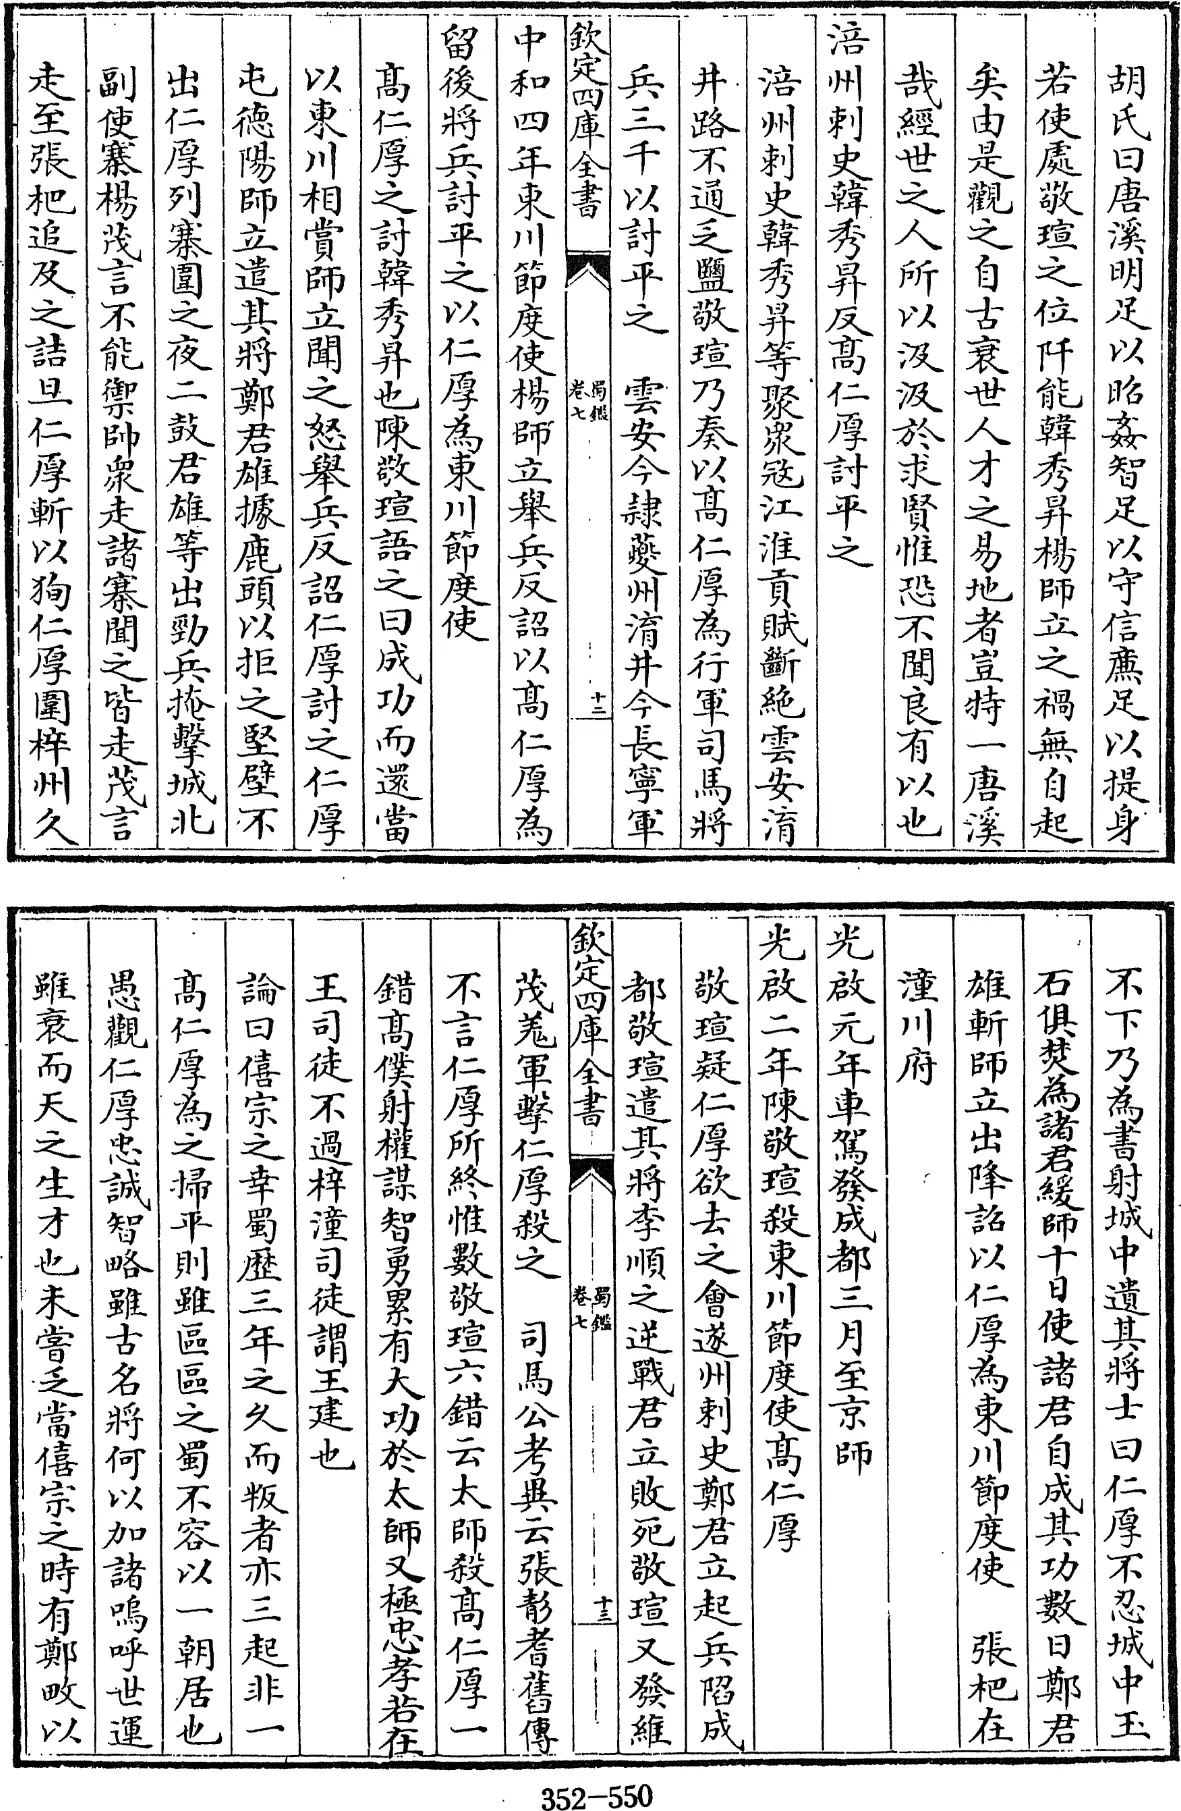 胡氏曰唐溪明足以昭姦智足以守信亷足以提身
若使處敬瑄之位阡能韓秀昇楊師立之禍無自起
矣由是觀之自古衰世人才之易地者豈特一唐溪
哉經世之人所以汲汲於求賢惟恐不聞良有以也
涪州刺史韓秀昇反髙仁厚討平之
涪州刺史韓秀昇等聚衆冦江淮貢賦斷絶雲安淯
井路不通乏鹽敬瑄乃奏以髙仁厚為行軍司馬將
兵三千以討平之　雲安今隷夔州淯井今長寧軍
欽定四庫全書　蜀鑑卷七　十二
中和四年東川節度使楊師立舉兵反詔以髙仁厚為
留後將兵討平之以仁厚為東川節度使
髙仁厚之討韓秀昇也陳敬瑄語之曰成功而還當
以東川相賞師立聞之怒舉兵反詔仁厚討之仁厚
屯徳陽師立遣其將鄭君雄據鹿頭以拒之堅壁不
出仁厚列寨圍之夜二鼓君雄等出勁兵掩擊城北
副使寨楊茂言不能禦帥衆走諸寨聞之皆走茂言
走至張杷追及之詰旦仁厚斬以狥仁厚圍梓州久
不下乃為書射城中遺其將士曰仁厚不忍城中玉
石俱焚為諸君緩師十日使諸君自成其功數日鄭君
雄斬師立出降詔以仁厚為東川節度使　張杷在
潼川府
光啟元年車駕發成都三月至京師
光啟二年陳敬瑄殺東川節度使髙仁厚
敬瑄疑仁厚欲去之會遂州刺史鄭君立起兵陷成
都敬瑄遣其將李順之逆戰君立敗死敬瑄又發維
欽定四庫全書　蜀鑑卷七　十三
茂羗軍擊仁厚殺之　司馬公考異云張彭耆舊傳
不言仁厚所終惟數敬瑄六錯云太師殺髙仁厚一
錯髙僕射權謀智勇累有大功於太師又極忠孝若在
王司徒不過梓潼司徒謂王建也
論曰僖宗之幸蜀歴三年之久而叛者亦三起非一
髙仁厚為之掃平則雖區區之蜀不容以一朝居也
愚觀仁厚忠誠智略雖古名將何以加諸嗚呼世運
雖衰而天之生才也未嘗乏當僖宗之時有鄭畋以
352-550